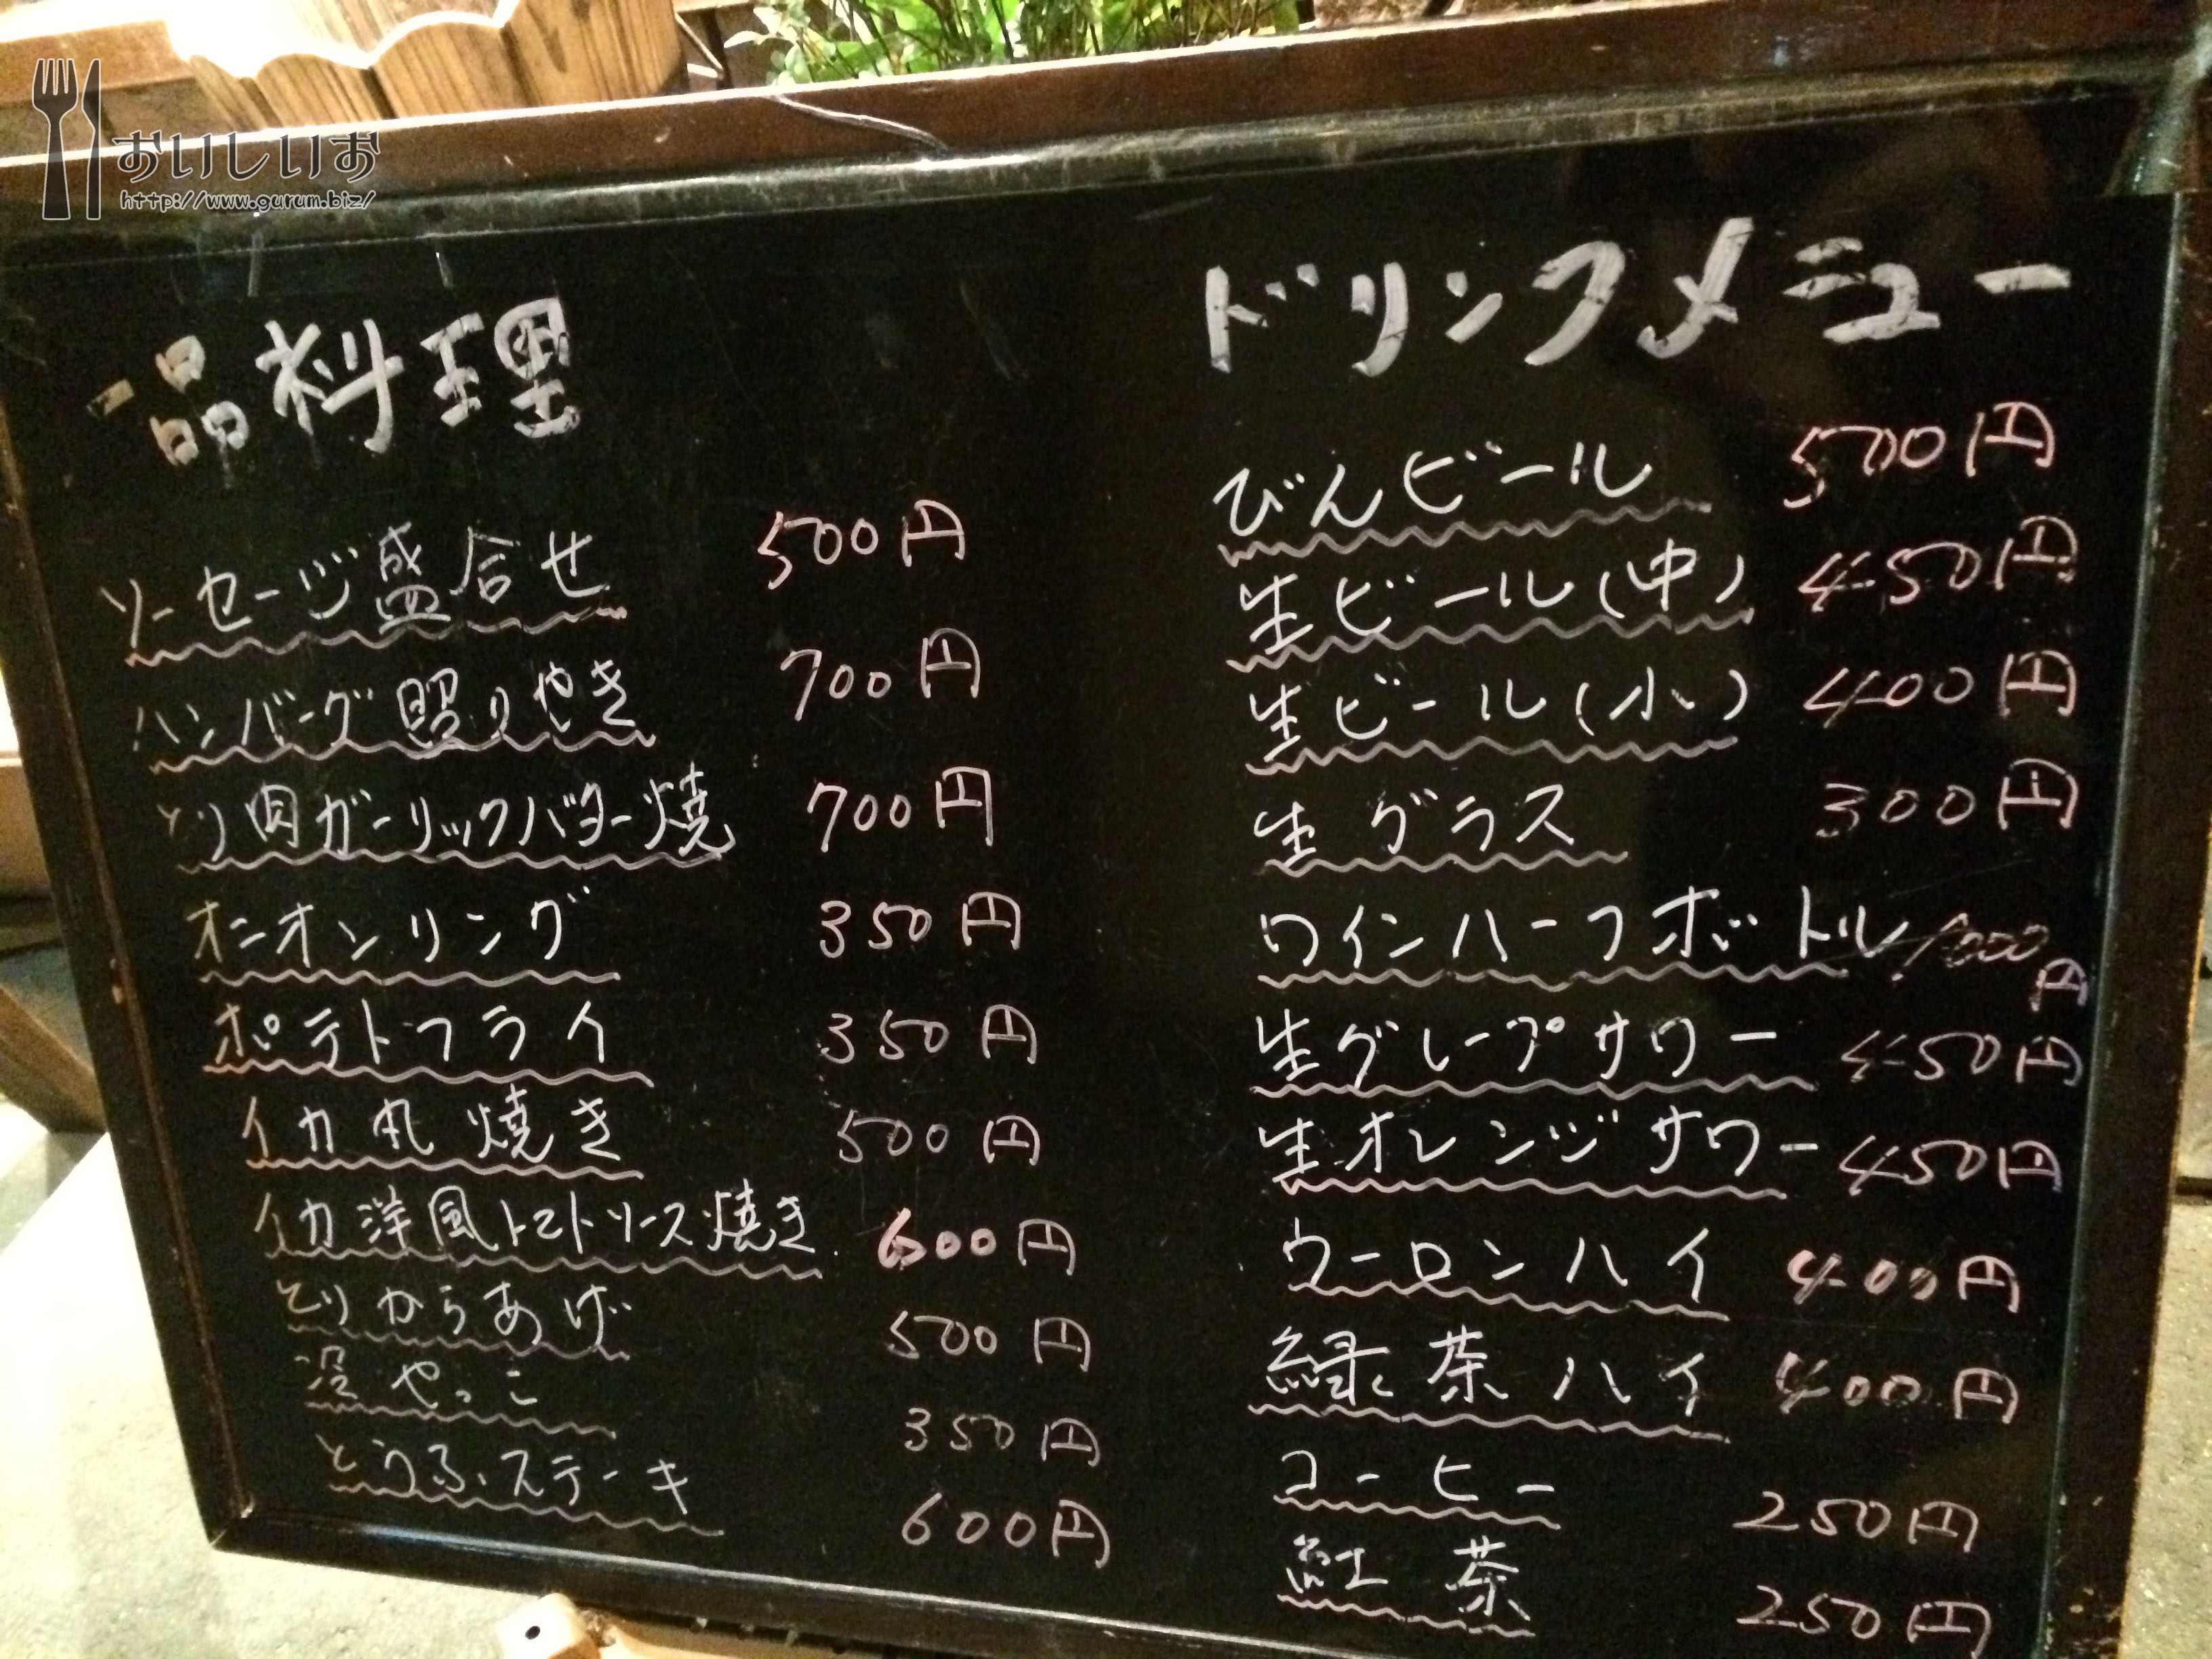 おいしいお
http://www.gurum.biz/
一品料理
ソーセージ盛合せ 500円
ハンバーグ照りやき 700円
とり肉ガーリックバター焼 700円
オニオンリング 350円
ポテトフライ 350円
イカ丸焼き 500円
イカ洋風トマトソース焼き 600円
とりからあげ 500円
冷やっこ 350円
とうふステーキ 600円
ドリンクメニュー
びんビール 500円
生ビール(中) 450円
生ビール(小) 400円
生グラス 300円
ワインハーフボトル 1000円
生グレープサワー 450円
生オレンジサワー 450円
ウーロンハイ 400円
緑茶ハイ 400円
コーヒー 250円
紅茶 250円